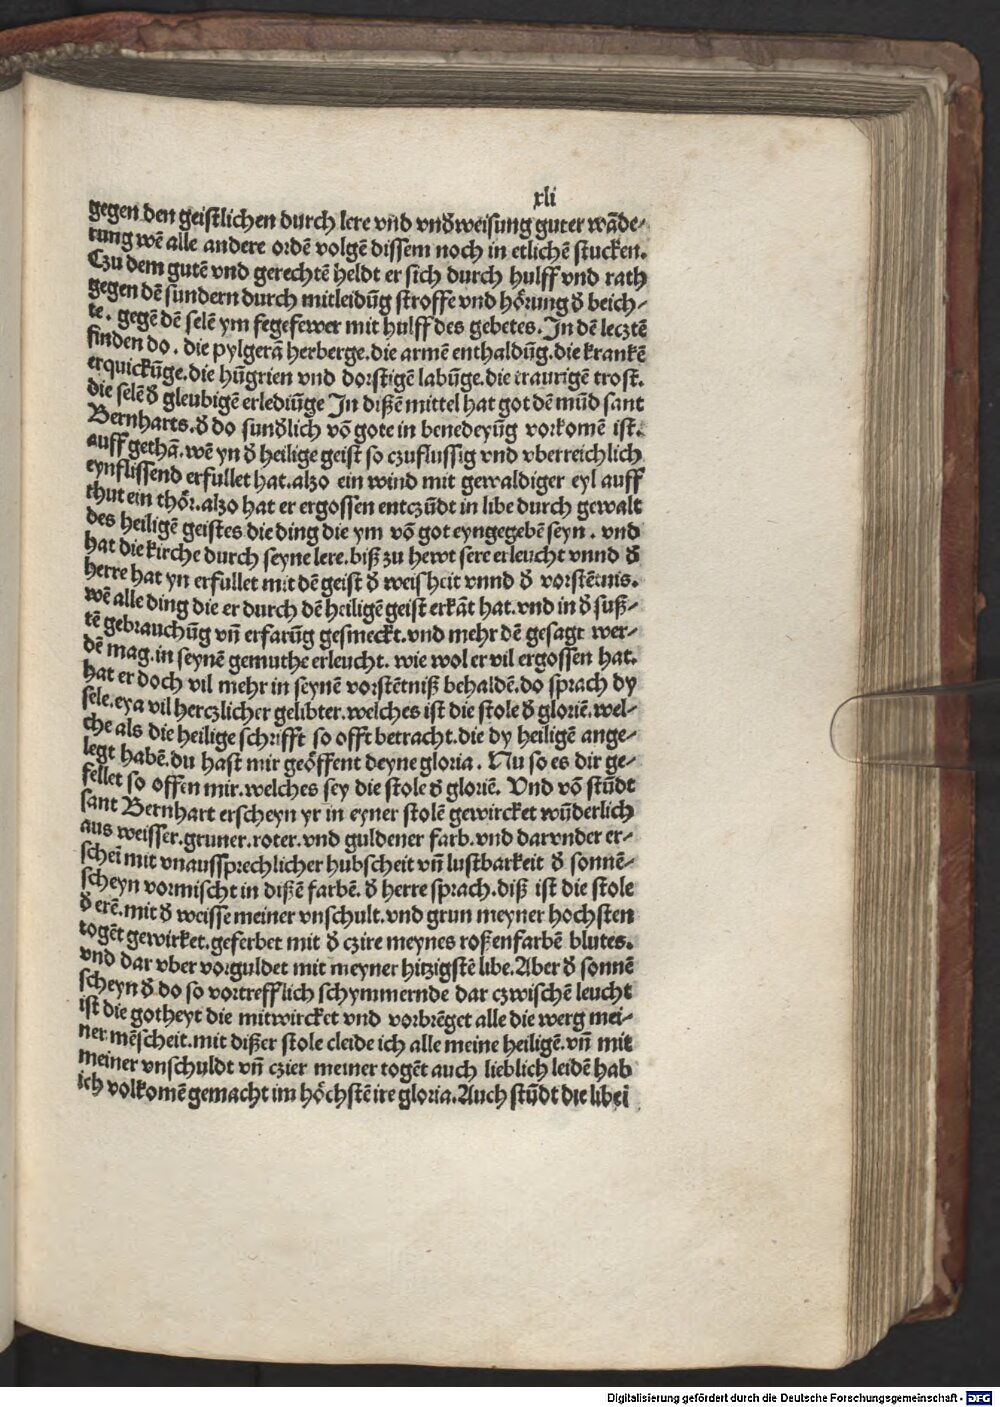 xli
gegen den geistlichen durch lere vnd vnd̕weisung guter wāde⸗
rung wē alle andere ordē volgē dissem noch in etlichē stucken.
Czu dem gutē vnd gerechtē heldt er sich durch hulff vnd rath
gegen dē sundern durch mitleidūg stroffe vnd hörung d̕ beich⸗
te. gegē dē selē ym fegefewer mit hulff des gebetes. In dē lecztē
finden do. die pylgerā herberge. die armē enthaldūg. die krankē
erquickūge. die hūgrien vnd dorstigē labūge. die traurigē trost.
die selē d̕ gleubigē erlediūge In dißē mittel hat got dē mūd sant
Bernharts. d̕ do sund̕lich vō gote in benedeyūg vorkomē ist.
auff gethā. wē yn d̕ heilige geist so czuflussig vnd vberreichlich
eynflissend erfullet hat. alzo ein wind mit gewaldiger eyl auff
thut ein thör. alzo hat er ergossen entczūdt in libe durch gewalt
des heiligē geistes die ding die ym vō got eyngegebē seyn. vnd
hat die kirche durch seyne lere. biß zu hewt sere erleucht vnnd d̕
herre hat yn erfullet mit dē geist d̕ weisheit vnnd d̕ vorstētnis.
wē alle ding die er durch dē heiligē geist erkāt hat. vnd in d̕ suß⸗
tē gebrauchūg vn̄ erfarūg gesmeckt. vnd mehr dē gesagt wer⸗
dē mag. in seynē gemuthe erleucht. wie wol er vil ergossen hat.
hat er doch vil mehr in seynē vorstētniß behaldē. do sprach dy
sele. eya vil herczlicher gelibter. welches ist die stole d̕ gloriē. wel⸗
che als die heilige schrifft so offt betracht. die dy heiligē ange⸗
legt habē. du hast mir geöffent deyne gloria. Nu so es dir ge⸗
fellet so offen mir. welches sey die stole d̕ gloriē. Vnd vō stūdt
sant Bernhart erscheyn yr in eyner stolē gewircket wūderlich
aus weisser. gruner. roter. vnd guldener farb. vnd darvnder er⸗
schei̅ mit vnaussprechlicher hubscheit vn̄ lustbarkeit d̕ sonnē⸗
scheyn vormischt in dißē farbē. d̕ herre sprach. diß ist die stole
d̕ erē. mit d̕ weisse meiner vnschult. vnd grun meyner hochsten
togēt gewirket. geferbet mit d̕ czire meynes roßenfarbē blutes.
vnd dar vber vorguldet mit meyner hitzigstē libe. Aber d̕ sonnē
scheyn d̕ do so vortrefflich schymmernde dar czwischē leucht
ist die gotheyt die mitwircket vnd vorbrēget alle die werg mei⸗
ner mēscheit. mit dißer stole cleide ich alle meine heiligē. vn̄ mit
meiner vnschuldt vn̄ czier meiner togēt auch lieblich leidē hab
ich volkomē gemacht im höchstē ire gloria. Auch stūdt die libei
Digitalisierung gefördert durch die Deutsche Forschungsgemeinschaft - DFG